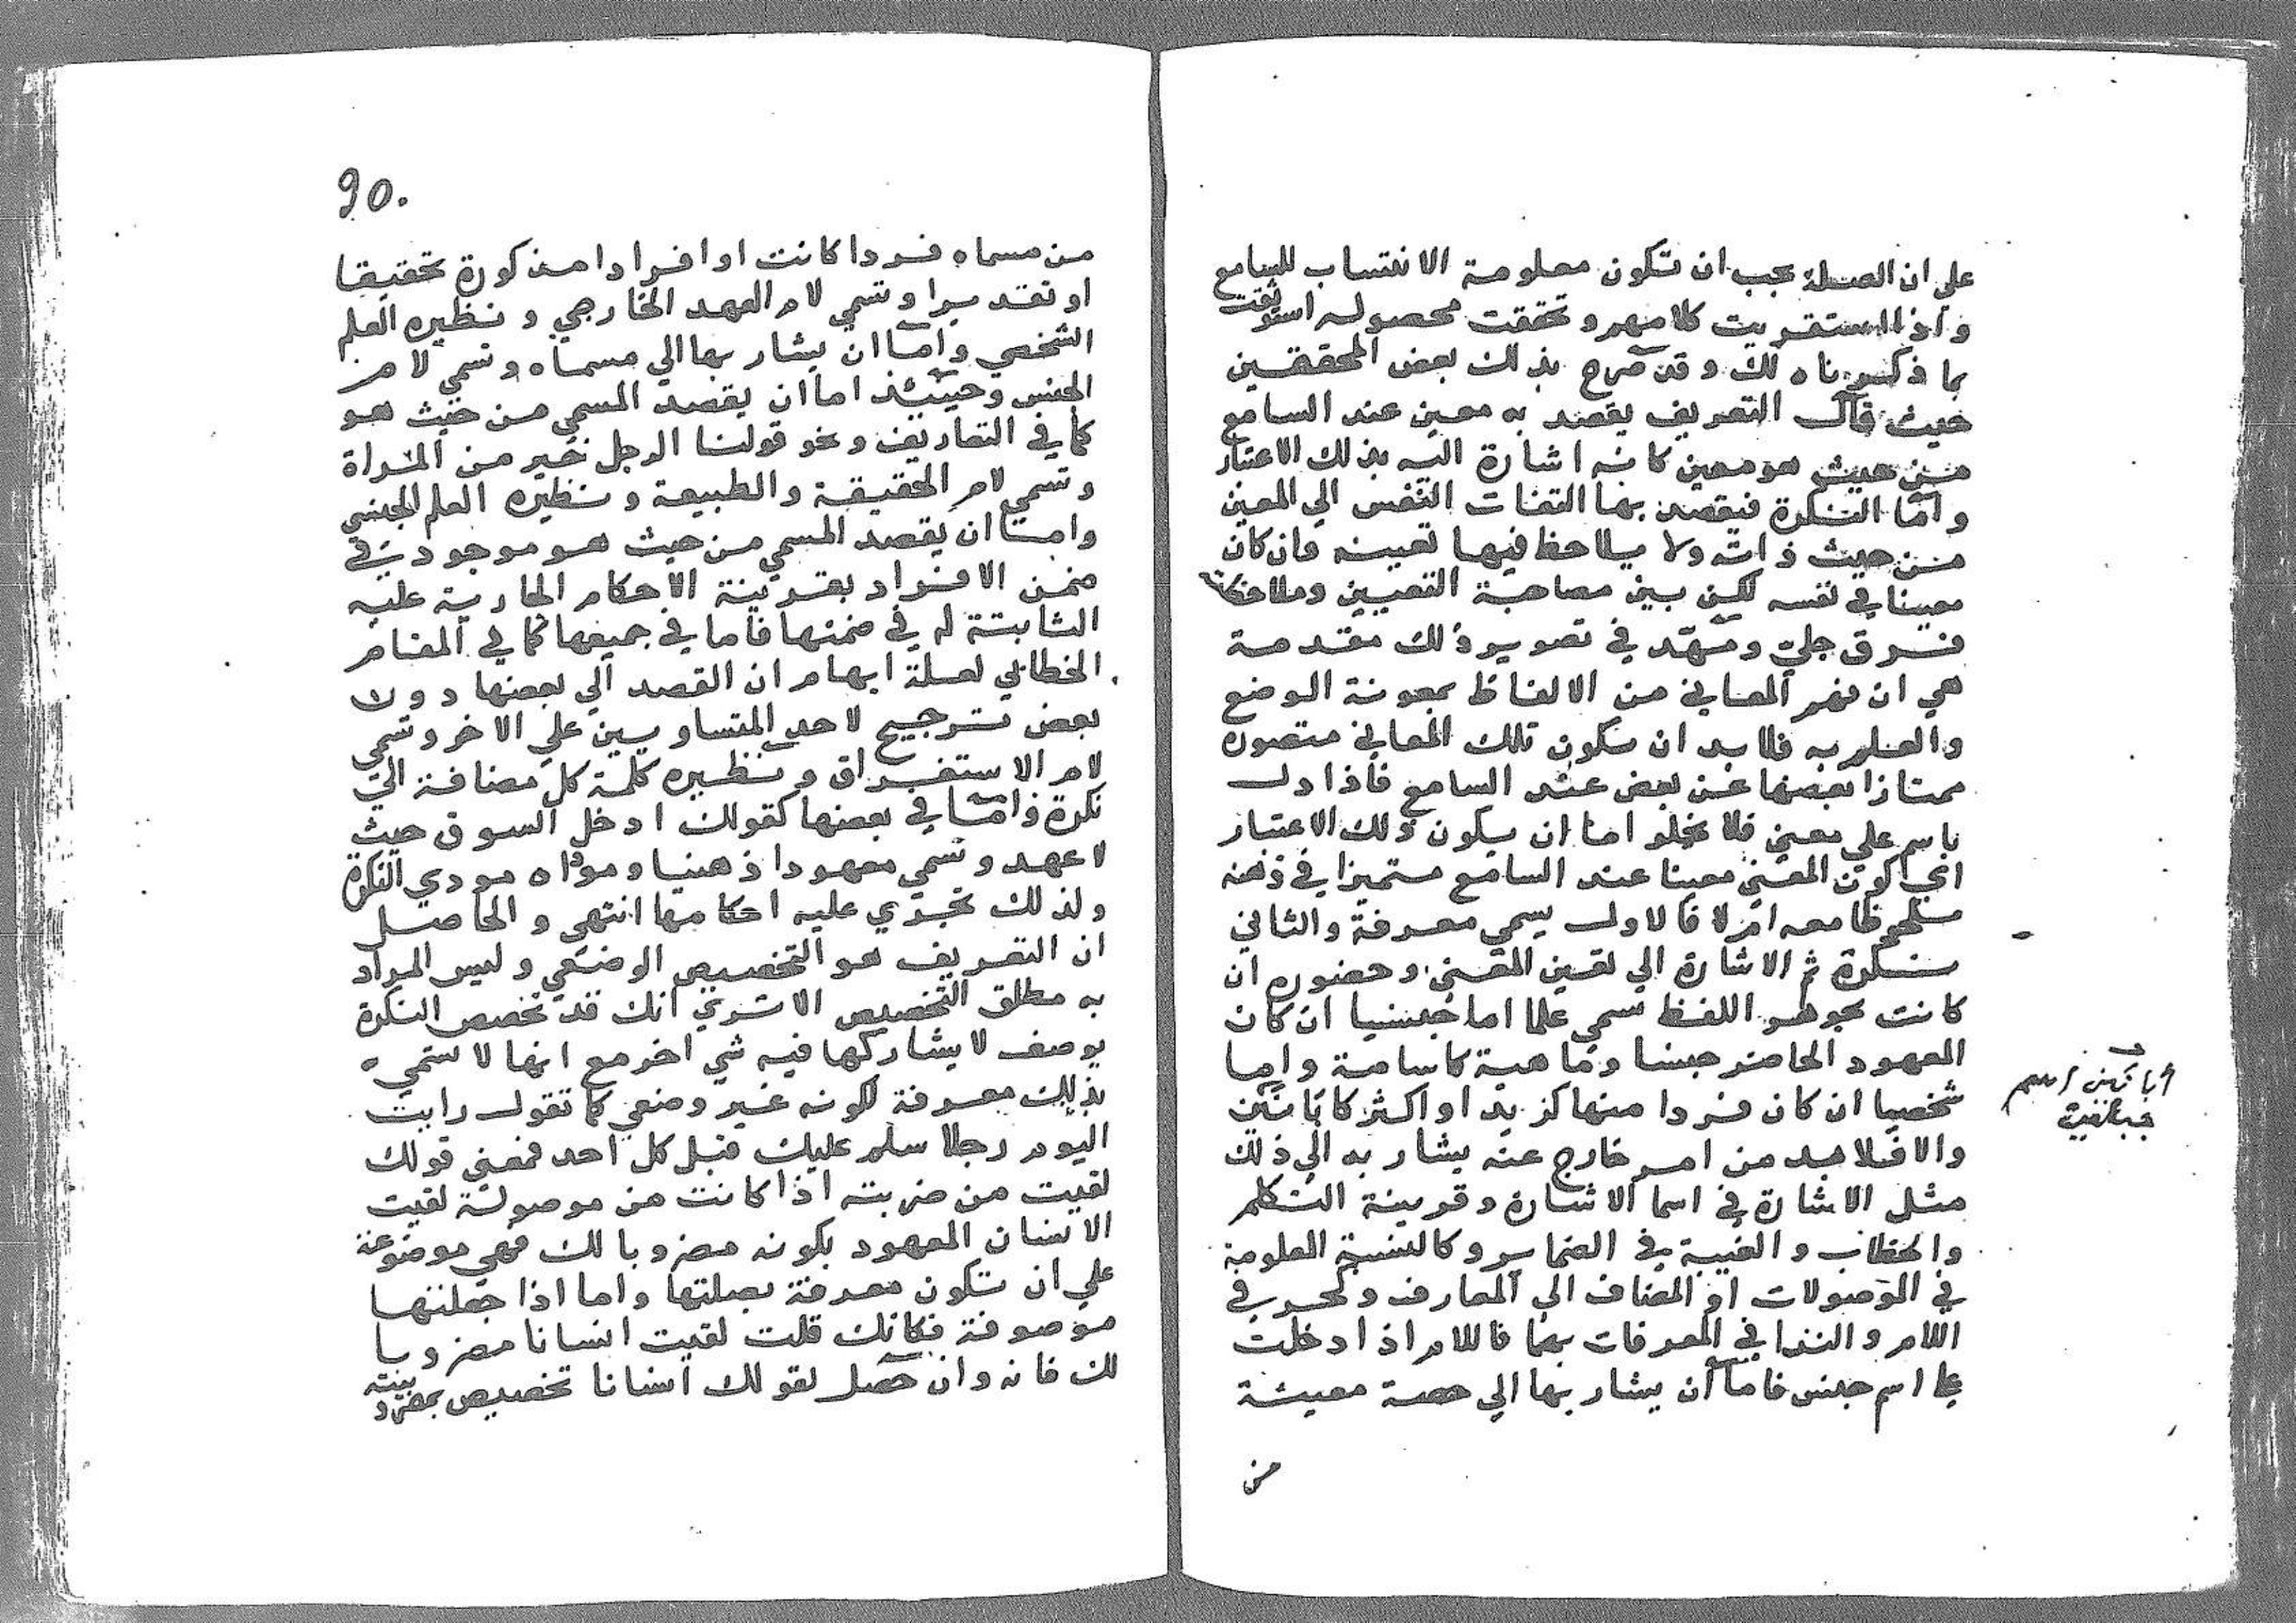 علي ان الصلة يجب ان تكون معلومة الانتساب للسامع
واذا استقريت كلامهم وتحققت محصوله استوثقت
بما ذكرناه لك وقد صرح بذلك بعض المحققين
حيث قال التعريف يقصد به معين عند السامع
من حيث هو معين كانه اشارة اليه بذلك الاعتبار
واما النكرة فيقصد بها التفات النفس الي المعين
من حيث ذاته ولا يلاحظ فيها تعينه وان كان
معينا في نفسه لكن بين مصاحبة التعيين وملاحظته
فرق جلي ومهّد في تصوير ذلك مقدمة
هي ان فهم المعاني من الالفاظ بمعونة الوضع
والعلم به فلا بد ان تكون تلك المعاني متصورة
ممتازا بعضها عن بعض عند السامع فاذا دل
باسم علي معني فلا يخلو اما ان يكون ذلك الاعتبار
اي كون المعني معينا عند السامع متميزا في ذهنه
ملحوظا معه ام لا فالاول يسمي معرفة والثاني
نكرة ثم الاشارة الي تعين المعني وحضوره ان
كانت بجوهر اللفظ سمي علما اما جنسيا ان كان
المعهود الحاضر جنسا وماهية كاسامة واما
شخصيا ان كان فردا منها كزيد او اكثر كابانين
والا فلا بد من امر خارج عنه يشار به الي ذلك
مثل الاشارة في اسما الاشارة وقرينة التكلم
والخطاب والغيبة في الضماير وكالنسبة المعلومة
في الموصولات او المضاف الي المعارف وكحرف
اللام والندا في المعرفات بهما فاللام اذا دخلت
علي اسم جنس فاما ان يشار بها الي حصة معينة
من
90.
من مسماه فردا كانت او افرادا مذكورة تحقيقا
او تقديرا وتسمي لام العهد الخارجي ونظيره العلم
الشخصي واما ان يشار بها الي مسماه وتسمي لام
الجنس وحينئذ اما ان يقصد المسمي من حيث هو
كما في التعاريف ونحو قولنا الرجل خير من المراة
وتسمي لام الحقيقة والطبيعة ونظيره العلم الجنسي
واما ان يقصد المسمي من حيث هو موجود في
ضمن الافراد بقرينة الاحكام الجارية عليه
الثابتة له في ضمنها فاما في جميعها كما في المقام
الخطابي لعلة ايهام ان القصد الي بعضها دون
بعض ترجيح لاحد المتساويين علي الاخر وتسمي
لام الاستغراق ونظيره كلمة كل مضافة الي
نكرة واما في بعضها كقولك ادخل السوق حيث
لا عهد وتسمي معهودا ذهنيا ومؤداه مودي النكرة
ولذلك تجري عليه احكامها انتهي والحاصل
ان التعريف هو التخصيص الوضعي وليس المراد
به مطلق التخصيص الا تري انك قد تخصص النكرة
بوصف لا يشاركها فيه شي اخر مع انها لا تسمي
بذلك معرفة لكونه غير وضعي كما تقول رايت
اليوم رجلا سلم عليك قبل كل احد فمعني قولك
لقيت من ضربته اذا كانت من موصولة لقيت
الانسان المعهود بكونه مضروبا لك فهي موضوعة
علي ان تكون معرفة بصلتها واما اذا جعلتها
موصوفة فكانك قلت لقيت انسانا مضروبا
لك فانه وان حصل لقولك انسانا تخصيص بمضروبيته